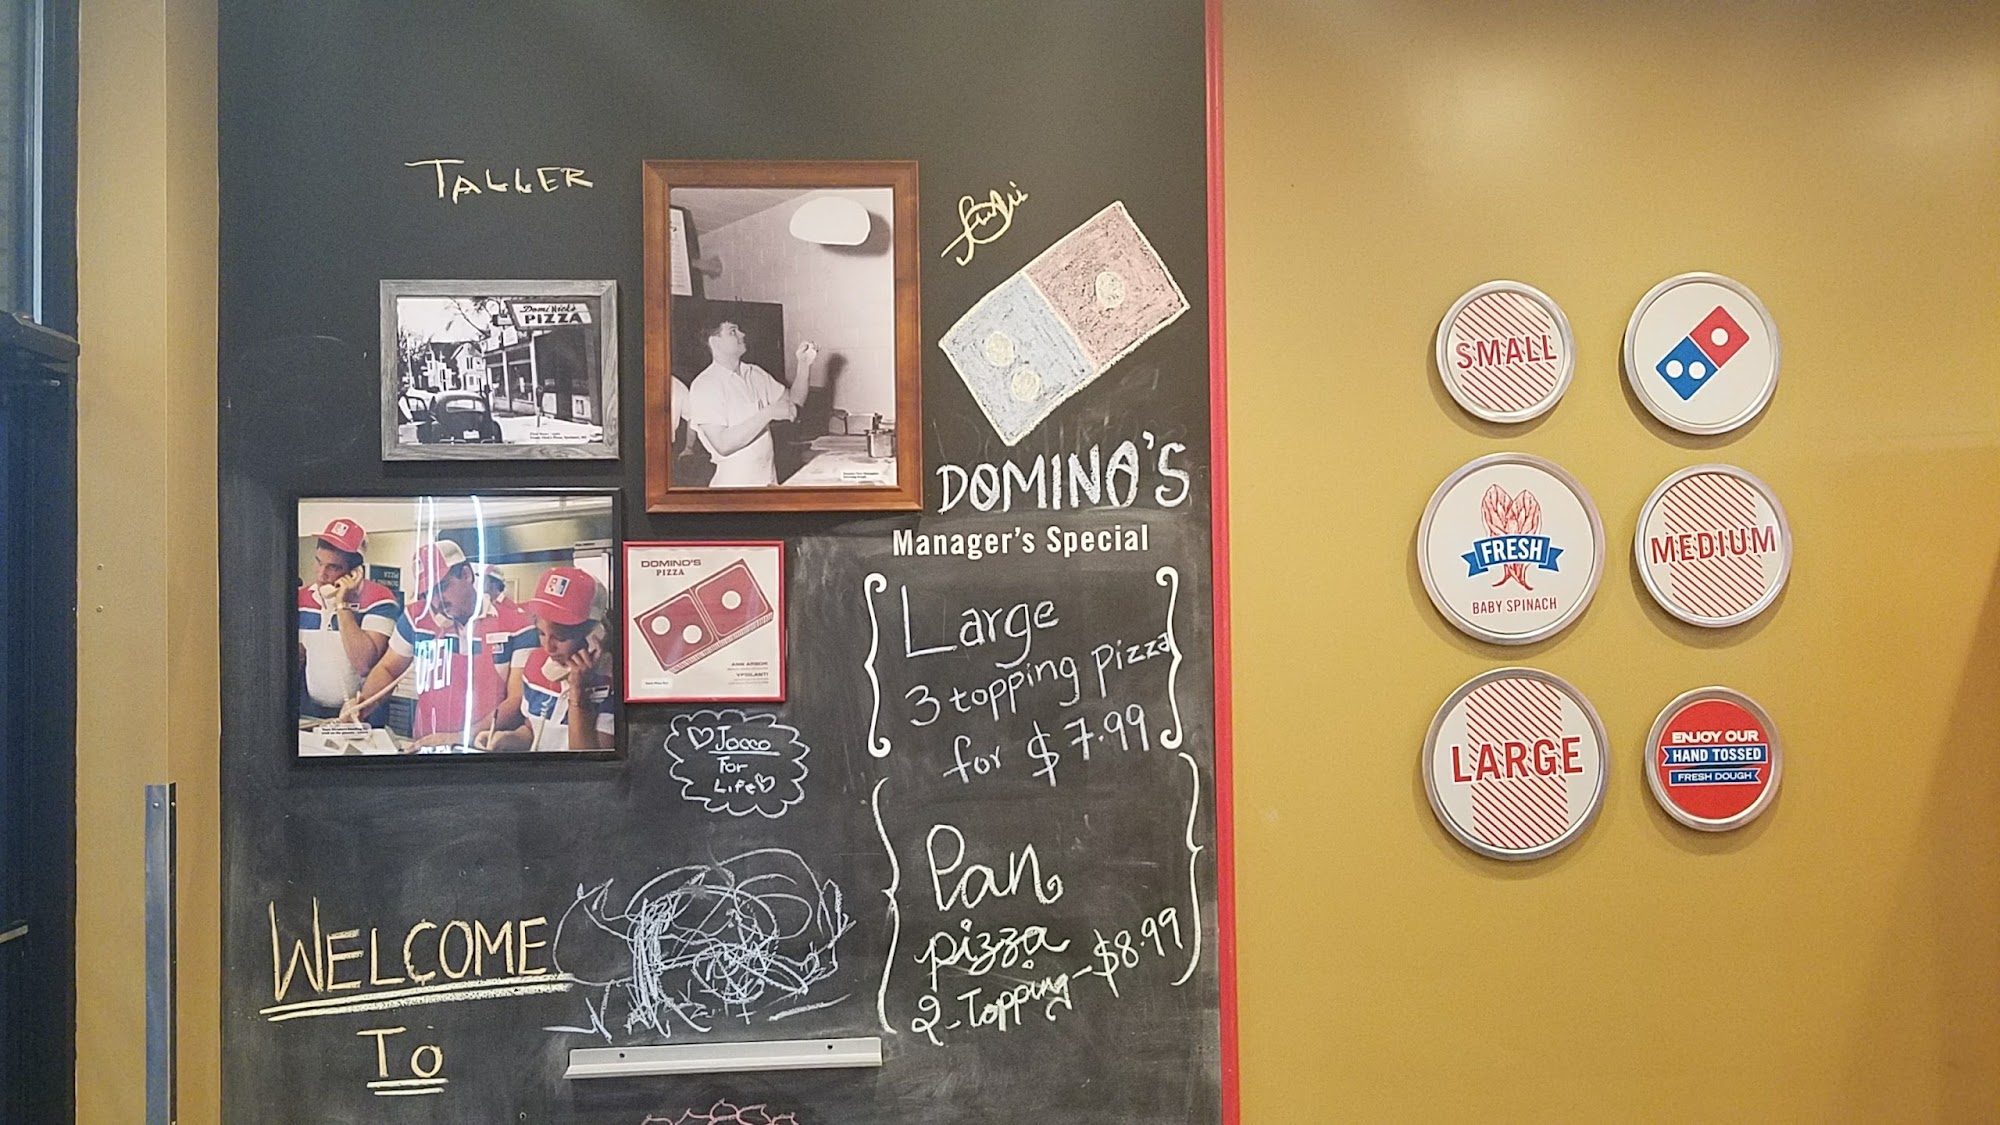 TALLER
Domi Nick's
PIZZA
DOMINO'S
PIZZA
ANN ARBOR:
YPSILANTI
OPEN
DOMINO'S
Manager's Special
Large
3 topping pizza
for $7.99
Jocco
For
Life
Pan
pizza
2-Topping-$8.99
WELCOME
To
SMALL
FRESH
BABY SPINACH
MEDIUM
LARGE
ENJOY OUR
HAND TOSSED
FRESH DOUGH